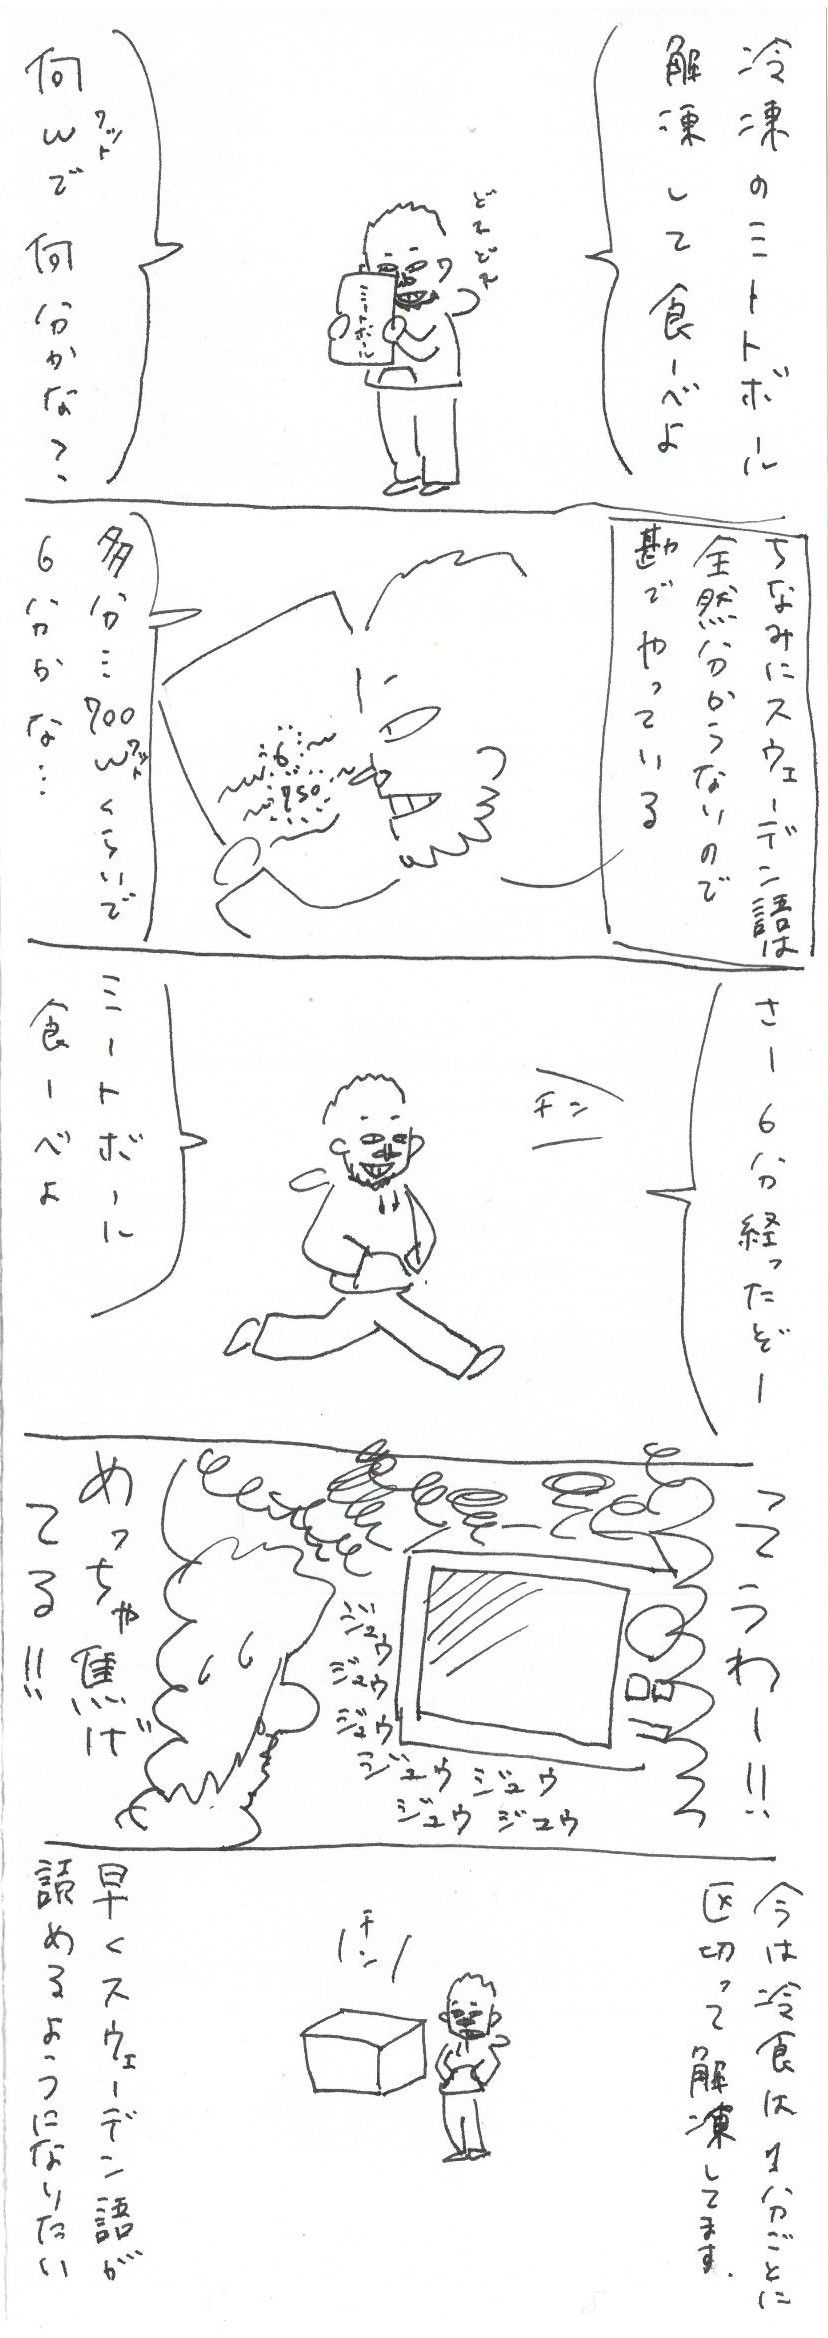 冷凍のミートボール
解凍して食ーべよ
どれどれ
ミートボール
何Wで何分かな?
ワット
ちなみにスウェーデン語は
全然分からないので
勘でやっている
6
750
多分…700Wくらいで
ワット
6分かな…
さー6分経ったぞー
チン
ミートボール
食ーべよ
ってうわー!!
ジュウ
ジュウ
ジュウ
ジュウ ジュウ
ジュウ ジュウ
めっちゃ焦げ
てる!!
今は冷食は1分ごとに
区切って解凍してます.
チン
早くスウェーデン語が
読めるようになりたい